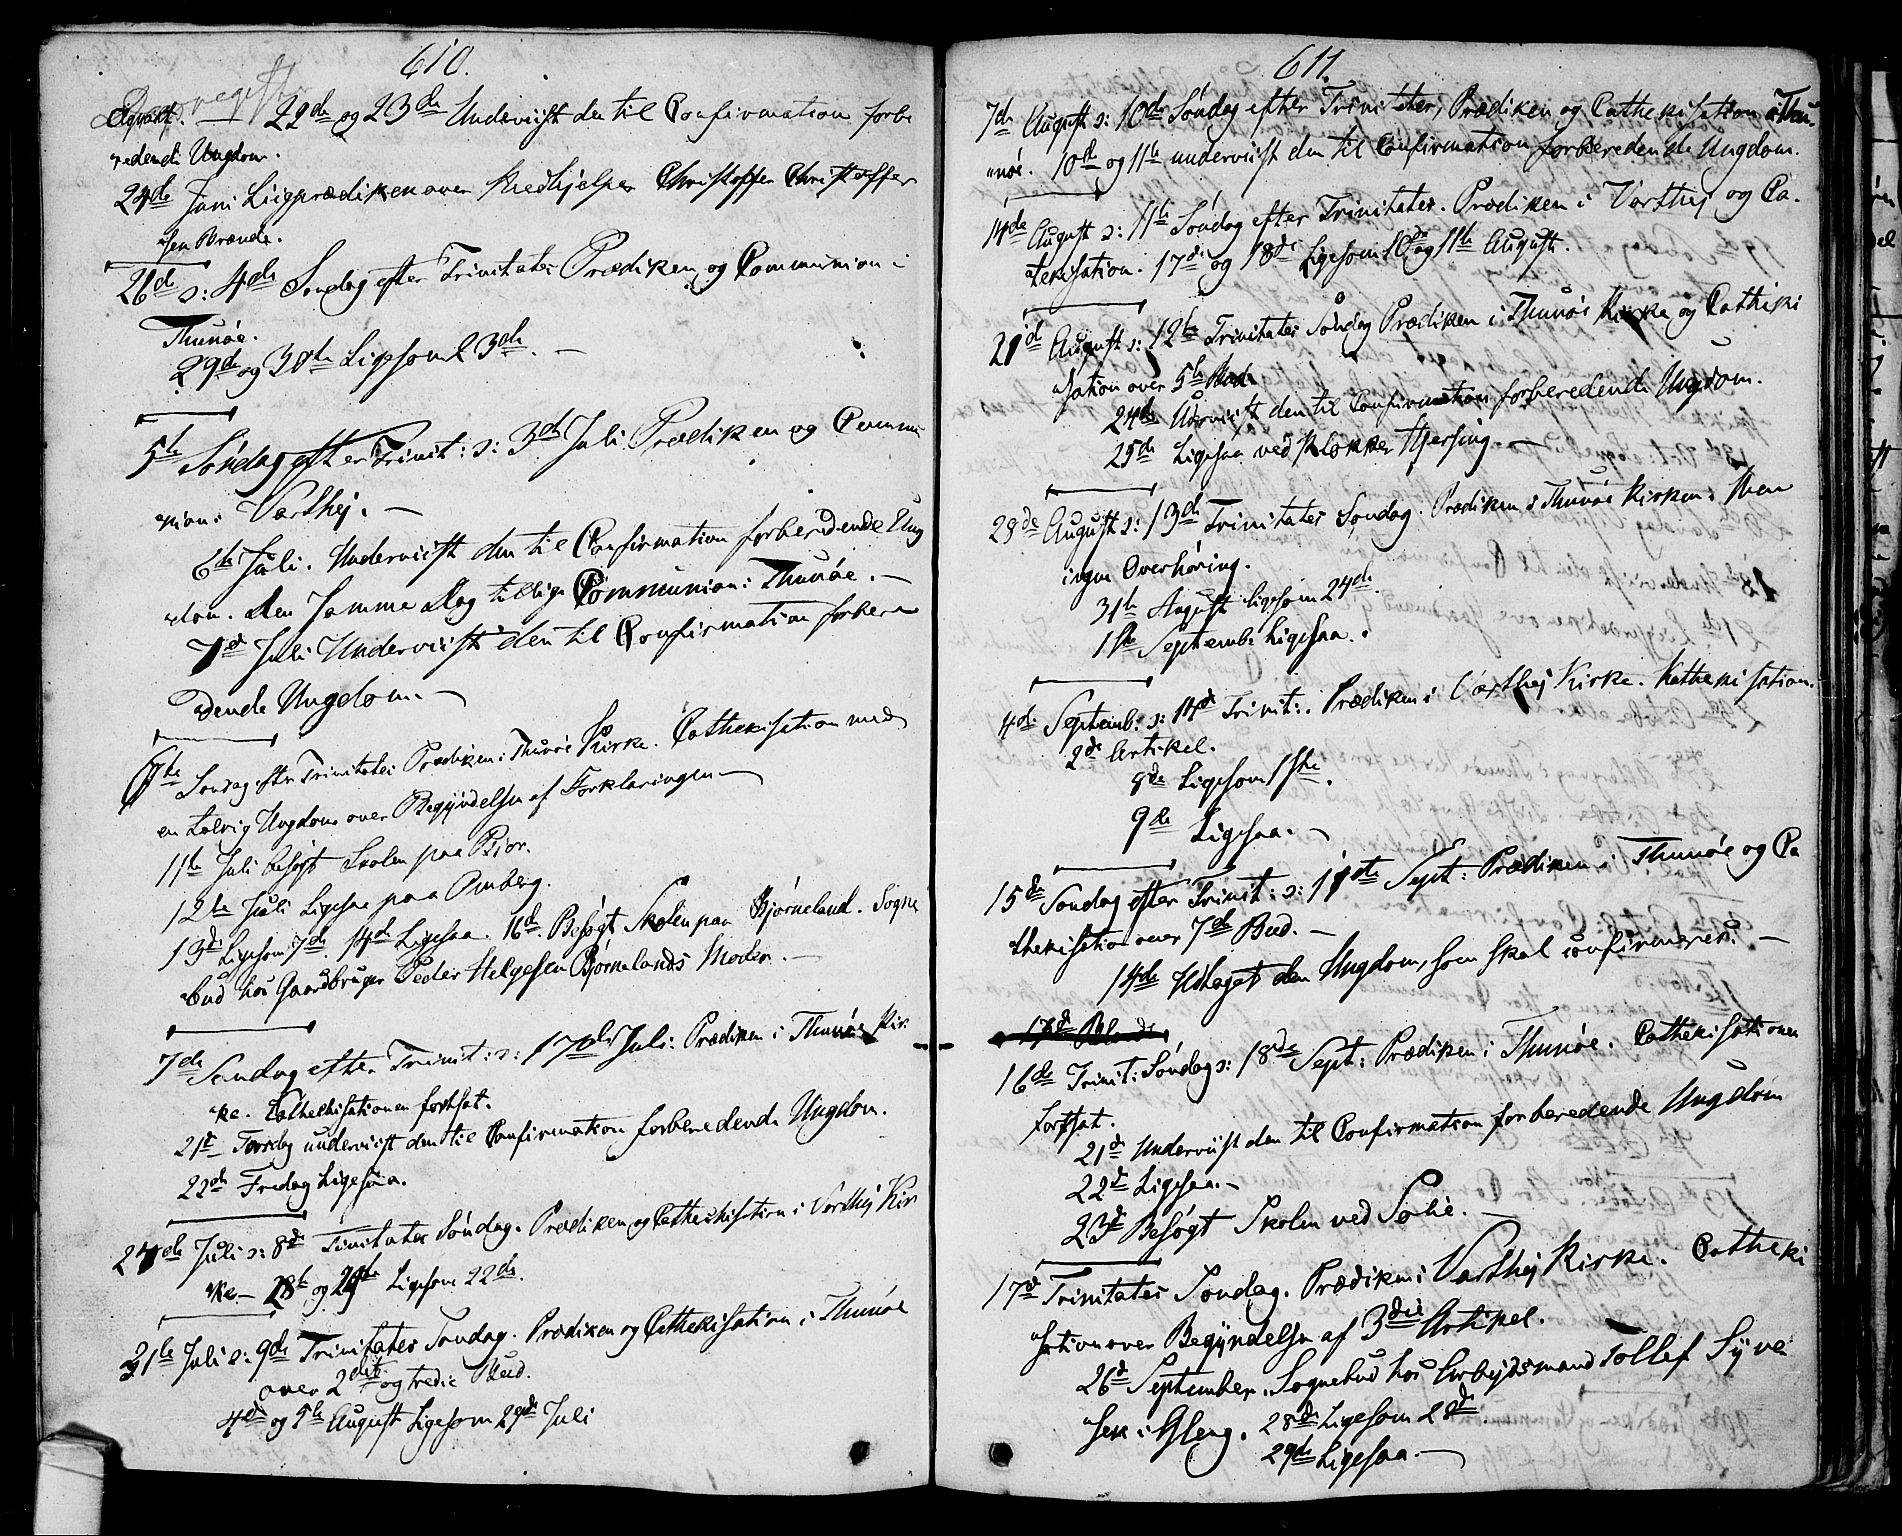 610.
Dagregister
22de og 23de Underviist den til Confirmation forbe
redende Ungdom.
24de Juni Liigprædiken over Medhjelper Christoffer Christoffer
sen Brænde.
26de ɔ: 4de Søndag efter Trinitates Prædiken og Communion i
Thunøe.
29de og 30te Ligesom 23de. —
5te Søndag efter Trinit: ɔ: 3de Juli Prædiken og Commu
nion: Varthej. —
6te Juli. Underviist den til Confirmation forberedende Ung
dom. Den samme Dag tillige Communion i Thunøe. —
7de Juli Underviist den til Confirmation forbere
dende Ungdom. —
6te Søndag efter Trinitates Prædiken i Thunøe Kirke. Cathekisation med
en talrig Ungdom over Begyndelsen af Forklaringen —
11te Juli besøgt Skolen paa
12te Juli Ligesaa paa Omberg.
13de Ligesom 7de. 14de Ligesaa. 16de Besøgt Skolen paa Bjørneland. Sogne
bud hos Gaardbruger Peder Helgesen Bjørnelands Moder. —
7de Søndag efter Trinit: ɔ: 17de Juli: Prædiken i Thunøe Kir
ke. Cathekisationen fortsat.
21de Torsdag underviist den til Confirmation forberedende Ungdom.
22de Fredag Ligesaa.
24de Juli ɔ: 8de Trinitates Søndag. Prædiken og Cathechisation i Varthej Kir
ke. — 28de og 29de Ligesom 22de.
31te Juli ɔ: 9de Trinitates Søndag. Prædiken og Cathekisation i Thunøe
over 2det og tredie Bud.
4de og 5te August Ligesom 29de Juli
611.
7de August ɔ: 10de Søndag efter Trinitates, Prædiken og Cathekisation i Thu-
nøe. 10de og 11te underviist den til Confirmation forberedende Ungdom.
14de August ɔ: 11te Søndag efter Trinitates. Prædiken i Varthej og Ca-
tekisation. 17de og 18de Ligesom 10de og 11te August.
21de August ɔ: 12te Trinitates Søndag Prædiken i Thunøe Kirke og Catheki
sation over 5te Bud.
24de Underviist den til Confirmation forberedende Ungdom.
25de Ligesaa ved Klokker Hjersing. —
28de August ɔ: 13de Trinitates Søndag. Prædiken i Thunøe Kirken. Men
ingen Overhøring.
31te August ligesom 24de.
1ste Septemb: Ligesaa.
4de Septemb: ɔ: 14de Trinit:. Prædiken i Varthej Kirke. Kathekisation.
2de Artikel.
8de Ligesom 1ste.
9de Ligesaa. —
15de Søndag efter Trinit: ɔ: 11te Sept: Prædiken i Thunøe og Ca
thekisation over 7de Bud. —
14de Udtaget den Ungdom, som skal confirmeres. —
16de Trinit: Søndag ɔ: 18de Sept: Prædiken i Thunøe. Cathekisationen
fortsat.
21de Underviist den til Confirmation forberedende Ungdom
22de Ligesaa. —
23de Besøgt Skolen ved Sølie. —
17de Trinitates Søndag. Prædiken i Varthej Kirke. Catheki
sation over Begyndelsen af 3die Artikel.
26de September. Sognebud hos Arbejdsmand Tollef Syve
sen i Gleng. 28de Ligesom 28de.
29de Ligesaa. —